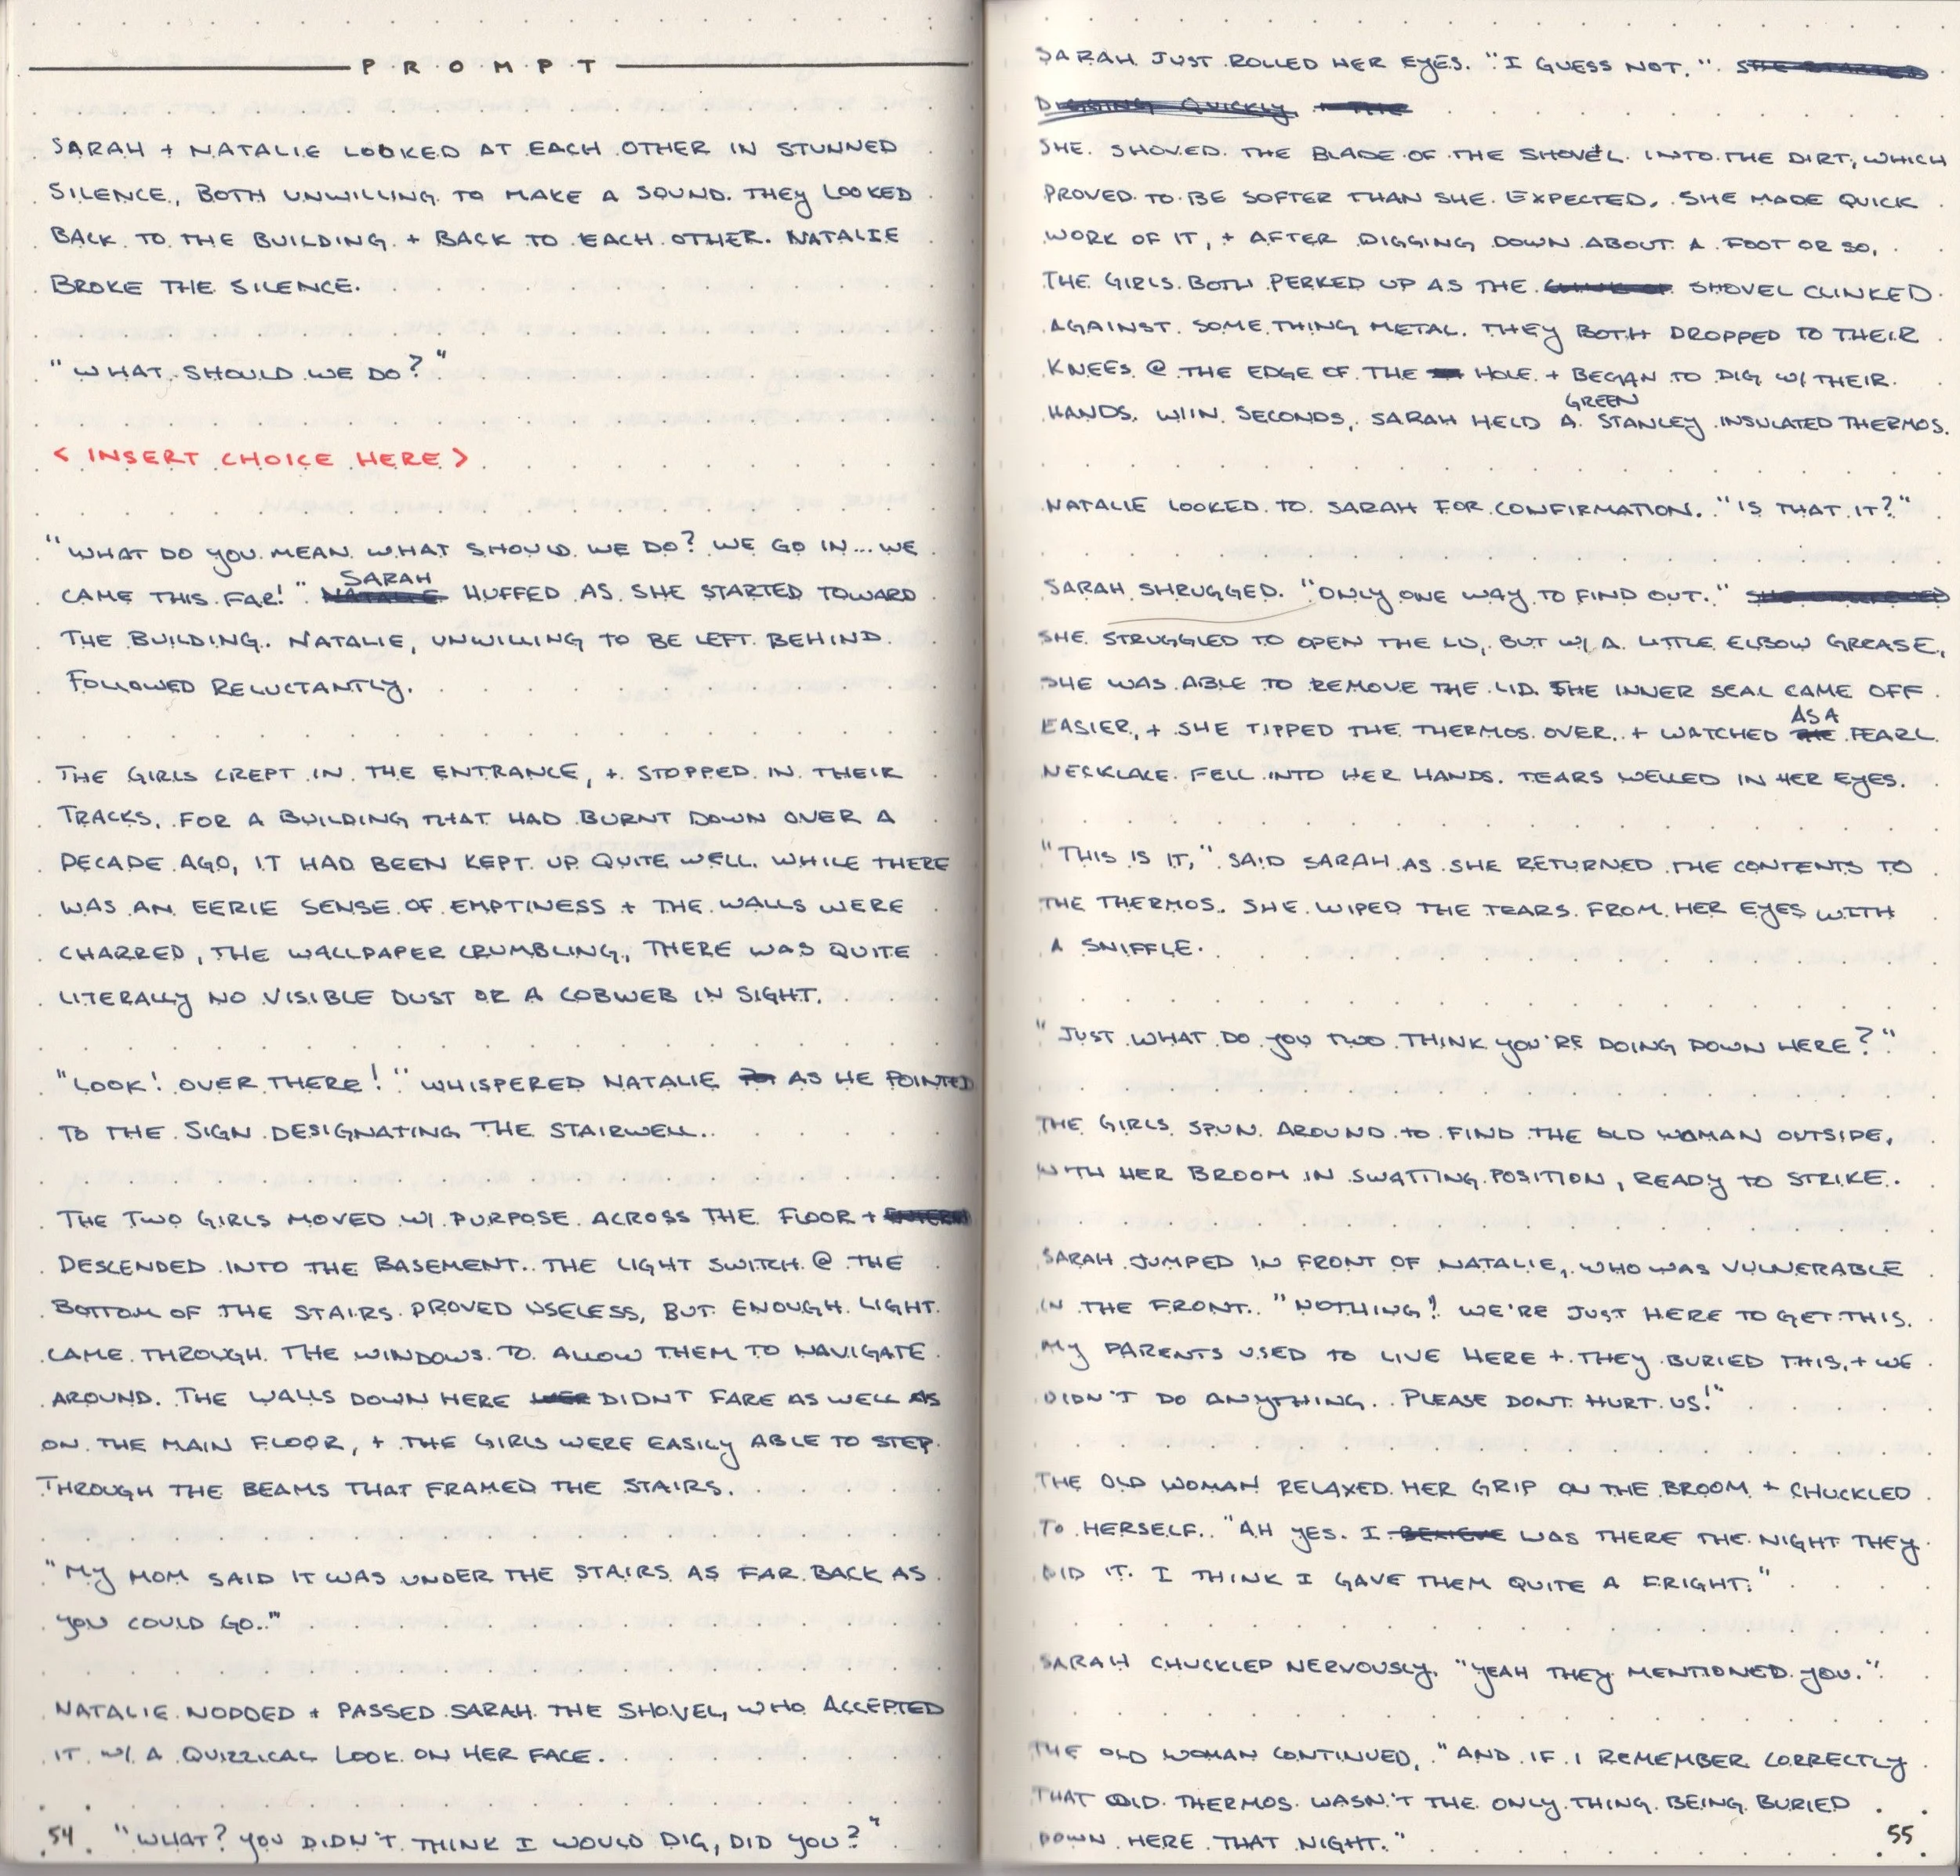 PROMPT
SARAH + NATALIE LOOKED AT EACH OTHER IN STUNNED
SILENCE, BOTH UNWILLING TO MAKE A SOUND. THEY LOOKED
BACK TO THE BUILDING + BACK TO EACH OTHER. NATALIE
BROKE THE SILENCE.
"WHAT SHOULD WE DO?"
< INSERT CHOICE HERE >
"WHAT DO YOU MEAN WHAT SHOULD WE DO? WE GO IN... WE
CAME THIS FAR!" SARAH HUFFED AS SHE STARTED TOWARD
THE BUILDING. NATALIE, UNWILLING TO BE LEFT BEHIND
FOLLOWED RELUCTANTLY.
THE GIRLS CREPT IN THE ENTRANCE, + STOPPED IN THEIR
TRACKS. FOR A BUILDING THAT HAD BURNT DOWN OVER A
DECADE AGO, IT HAD BEEN KEPT UP QUITE WELL. WHILE THERE
WAS AN EERIE SENSE OF EMPTINESS + THE WALLS WERE
CHARRED, THE WALLPAPER CRUMBLING, THERE WAS QUITE
LITERALLY NO VISIBLE DUST OR A COBWEB IN SIGHT.
"LOOK! OVER THERE!" WHISPERED NATALIE AS HE POINTED
TO THE SIGN DESIGNATING THE STAIRWELL.
THE TWO GIRLS MOVED W/ PURPOSE ACROSS THE FLOOR +
DESCENDED INTO THE BASEMENT. THE LIGHT SWITCH @ THE
BOTTOM OF THE STAIRS PROVED USELESS, BUT ENOUGH LIGHT
CAME THROUGH THE WINDOWS TO ALLOW THEM TO NAVIGATE
AROUND. THE WALLS DOWN HERE DIDNT FARE AS WELL AS
ON THE MAIN FLOOR, + THE GIRLS WERE EASILY ABLE TO STEP
THROUGH THE BEAMS THAT FRAMED THE STAIRS.
"MY MOM SAID IT WAS UNDER THE STAIRS AS FAR BACK AS
YOU COULD GO."
NATALIE NODDED + PASSED SARAH THE SHOVEL, WHO ACCEPTED
IT W/ A QUIZZICAL LOOK ON HER FACE.
"WHAT? YOU DIDN'T THINK I WOULD DIG, DID YOU?"
54
SARAH JUST ROLLED HER EYES. "I GUESS NOT." SHE STARTED
DIGGING QUICKLY + THE
SHE SHOVED THE BLADE OF THE SHOVEL INTO THE DIRT, WHICH
PROVED TO BE SOFTER THAN SHE EXPECTED. SHE MADE QUICK
WORK OF IT, + AFTER DIGGING DOWN ABOUT A FOOT OR SO,
THE GIRLS BOTH PERKED UP AS THE SHOVEL CLINKED
AGAINST SOMETHING METAL. THEY BOTH DROPPED TO THEIR
KNEES @ THE EDGE OF THE HOLE + BEGAN TO DIG W/ THEIR
HANDS. W/IN SECONDS, SARAH HELD A GREEN STANLEY INSULATED THERMOS.
NATALIE LOOKED TO SARAH FOR CONFIRMATION. "IS THAT IT?"
SARAH SHRUGGED. "ONLY ONE WAY TO FIND OUT."
SHE STRUGGLED TO OPEN THE LID, BUT W/ A LITTLE ELBOW GREASE,
SHE WAS ABLE TO REMOVE THE LID. THE INNER SEAL CAME OFF
EASIER, + SHE TIPPED THE THERMOS OVER + WATCHED AS A PEARL
NECKLACE FELL INTO HER HANDS. TEARS WELLED IN HER EYES.
"THIS IS IT," SAID SARAH AS SHE RETURNED THE CONTENTS TO
THE THERMOS. SHE WIPED THE TEARS FROM HER EYES WITH
A SNIFFLE.
"JUST WHAT DO YOU TWO THINK YOU'RE DOING DOWN HERE?"
THE GIRLS SPUN AROUND TO FIND THE OLD WOMAN OUTSIDE,
WITH HER BROOM IN SWATTING POSITION, READY TO STRIKE.
SARAH JUMPED IN FRONT OF NATALIE, WHO WAS VULNERABLE
IN THE FRONT. "NOTHING! WE'RE JUST HERE TO GET THIS.
MY PARENTS USED TO LIVE HERE + THEY BURIED THIS, + WE
DIDN'T DO ANYTHING. PLEASE DONT HURT US!"
THE OLD WOMAN RELAXED HER GRIP ON THE BROOM + CHUCKLED
TO HERSELF. "AH YES. I BELIEVE WAS THERE THE NIGHT THEY
DID IT. I THINK I GAVE THEM QUITE A FRIGHT."
SARAH CHUCKLED NERVOUSLY. "YEAH THEY MENTIONED YOU."
THE OLD WOMAN CONTINUED, "AND IF I REMEMBER CORRECTLY
THAT OLD THERMOS WASN'T THE ONLY THING BEING BURIED
DOWN HERE THAT NIGHT."
55